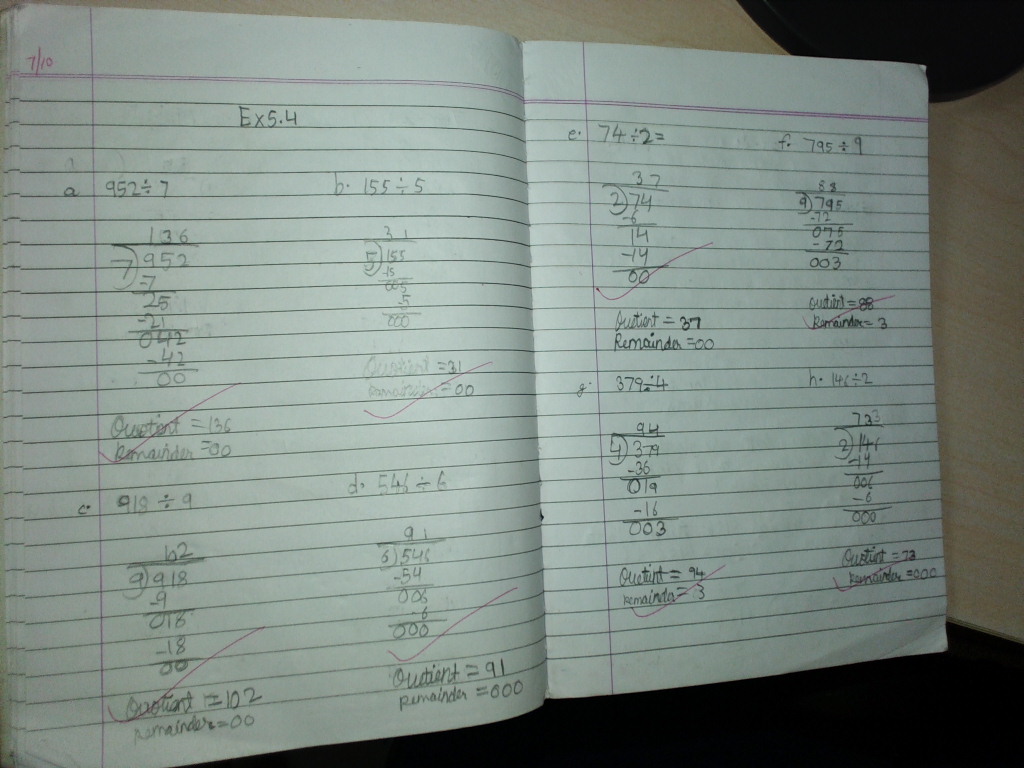 7/10
Ex5.4
a 952÷7
136
7)952
-7
25
-21
042
-42
00
Quotient = 136
Remainder = 00
b. 155÷5
31
5)155
-15
005
-5
000
Quotient = 31
Remainder = 00
c. 918÷9
102
9)918
-9
018
-18
00
Quotient = 102
Remainder = 00
d. 546÷6
91
6)546
-54
006
-6
000
Quotient = 91
Remainder = 000
e. 74÷2=
37
2)74
-6
14
-14
00
Quotient = 37
Remainder = 00
f. 795÷9
88
9)795
-72
075
-72
003
Quotient = 88
Remainder = 3
g. 379÷4
94
4)379
-36
019
-16
003
Quotient = 94
Remainder = 3
h. 146÷2
2)146
-14
006
-6
000
Quotient = 73
Remainder = 000